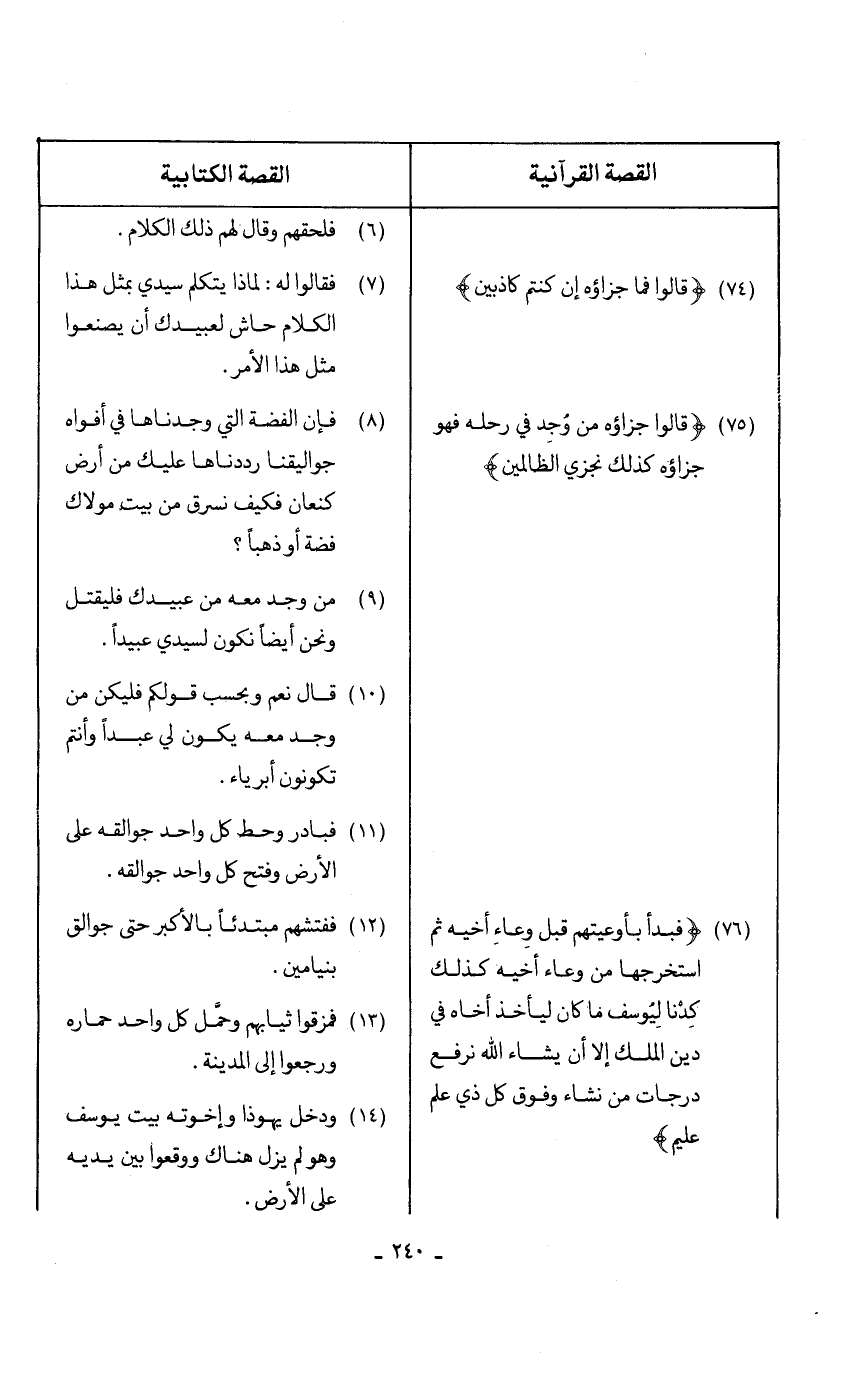 القصة القرآنية
(٧٤) ﴿قالوا فما جزاؤه إن كنتم كاذبين﴾
(٧٥) ﴿قالوا جزاؤه من وُجِد في رحله فهو
جزاؤه كذلك نجزي الظالمين﴾
(٧٦) ﴿فبدأ بأوعيتهم قبل وِعاءِ أخيه ثم
استخرجها من وعاء أخيه كذلك
كِدْنا لِيُوسف ما كان ليأخذ أخاه في
دين الملك إلا أن يشاء الله نرفع
درجات من نشاء وفوق كل ذي علم
عليم﴾
القصة الكتابية
(٦) فلحقهم وقال لهم ذلك الكلام .
(٧) فقالوا له : لماذا يتكلم سيدي بمثل هذا
الكلام حاش لعبيدك أن يصنعوا
مثل هذا الأمر .
(٨) فإن الفضة التي وجدناها في أفواه
جواليقنا رددناها عليك من أرض
كنعان فكيف نسرق من بيت مولاك
فضة أو ذهباً ؟
(٩) من وجد معه من عبيدك فليقتل
ونحن أيضاً نكون لسيدي عبيداً .
(١٠) قال نعم وبحسب قولكم فليكن من
وجد معه يكون لي عبداً وأنتم
تكونون أبرياء .
(١١) فبادر وحط كل واحد جوالقه على
الأرض وفتح كل واحد جوالقه .
(١٢) ففتشهم مبتدئاً بالأكبر حتى جوالق
بنيامين .
(١٣) فمزقوا ثيابهم وحمَّل كل واحد حماره
ورجعوا إلى المدينة .
(١٤) ودخل يهوذا وإخوته بيت يوسف
وهو لم يزل هناك ووقعوا بين يديه
على الأرض .
- ٢٤٠ -